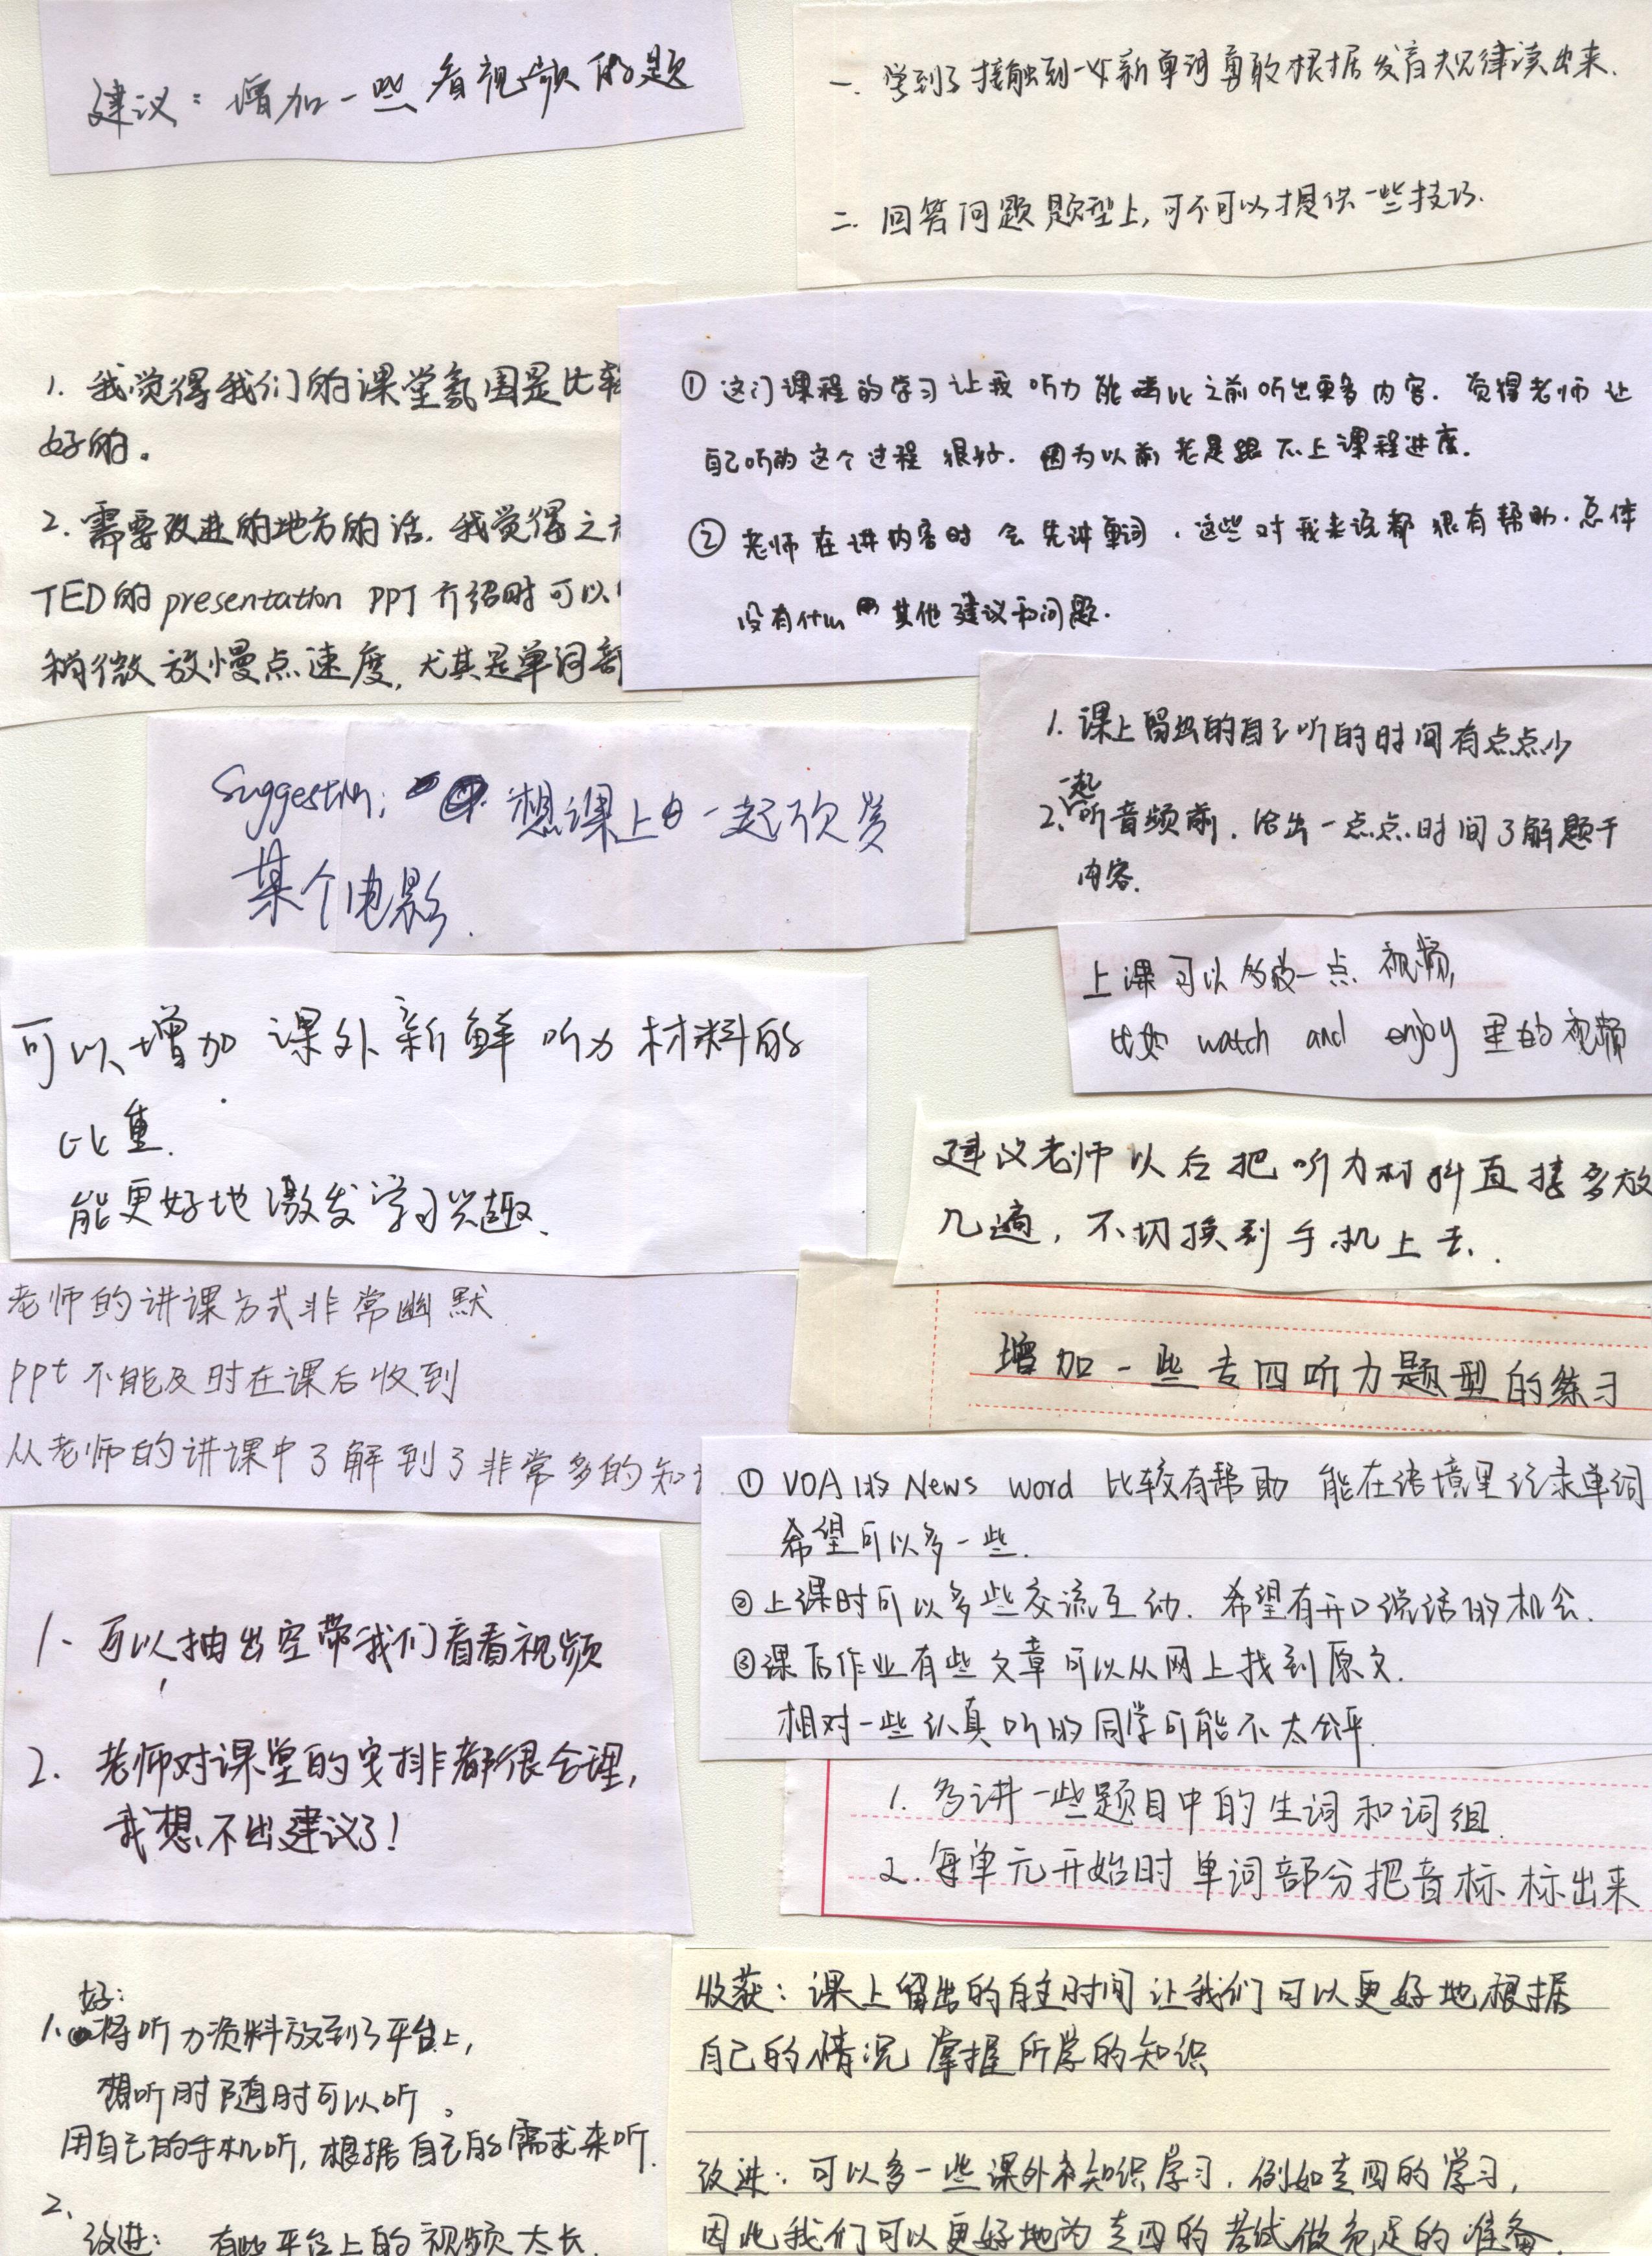 建议：增加一些看视频的题
一. 学到了接触到一些新单词勇敢根据发音规律读出来.
二. 回答问题题型上,可不可以提供一些技巧.
1. 我觉得我们的课堂氛围是比较
好的。
2. 需要改进的地方的话, 我觉得之
TED的presentation PPT介绍时可以
稍微放慢点速度, 尤其是单词部
① 这门课程的学习让我听力能够比之前听出更多内容. 觉得老师让
自己听的这个过程很好. 因为以前老是跟不上课程进度.
② 老师在讲内容时会先讲单词, 这些对我来说都很有帮助. 总体
没有什么其他建议和问题.
Suggestion: 想课上一起欣赏
某个电影.
1. 课上留出的自己听的时间有点点少
2. 一起听音频前, 给出一点点时间了解题干
内容.
上课可以多放一点视频,
比如 watch and enjoy 里的视频
可以增加课外新鲜听力材料的
比重.
能更好地激发学习兴趣.
建议老师以后把听力材料直接多放
几遍, 不切换到手机上去.
老师的讲课方式非常幽默
ppt不能及时在课后收到
从老师的讲课中了解到了非常多的知
增加一些专四听力题型的练习
① VOA的News word 比较有帮助 能在语境里记录单词
希望可以多一些.
② 上课时可以多些交流互动. 希望有开口说话的机会.
③ 课后作业有些文章可以从网上找到原文.
相对一些认真听的同学可能不太公平.
1. 可以抽出空带我们看看视频
2. 老师对课堂的安排都很合理,
我想不出建议了!
1. 多讲一些题目中的生词和词组.
2. 每单元开始时单词部分把音标标出来
好:
1. 将听力资料放到了平台上,
想听时随时可以听。
用自己的手机听, 根据自己的需求来听.
2.
改进: 有些平台上的视频太长.
收获: 课上留出的自主时间让我们可以更好地根据
自己的情况掌握所学的知识
改进: 可以多一些课外知识学习, 例如专四的学习,
因此我们可以更好地为专四的考试做充足的准备.